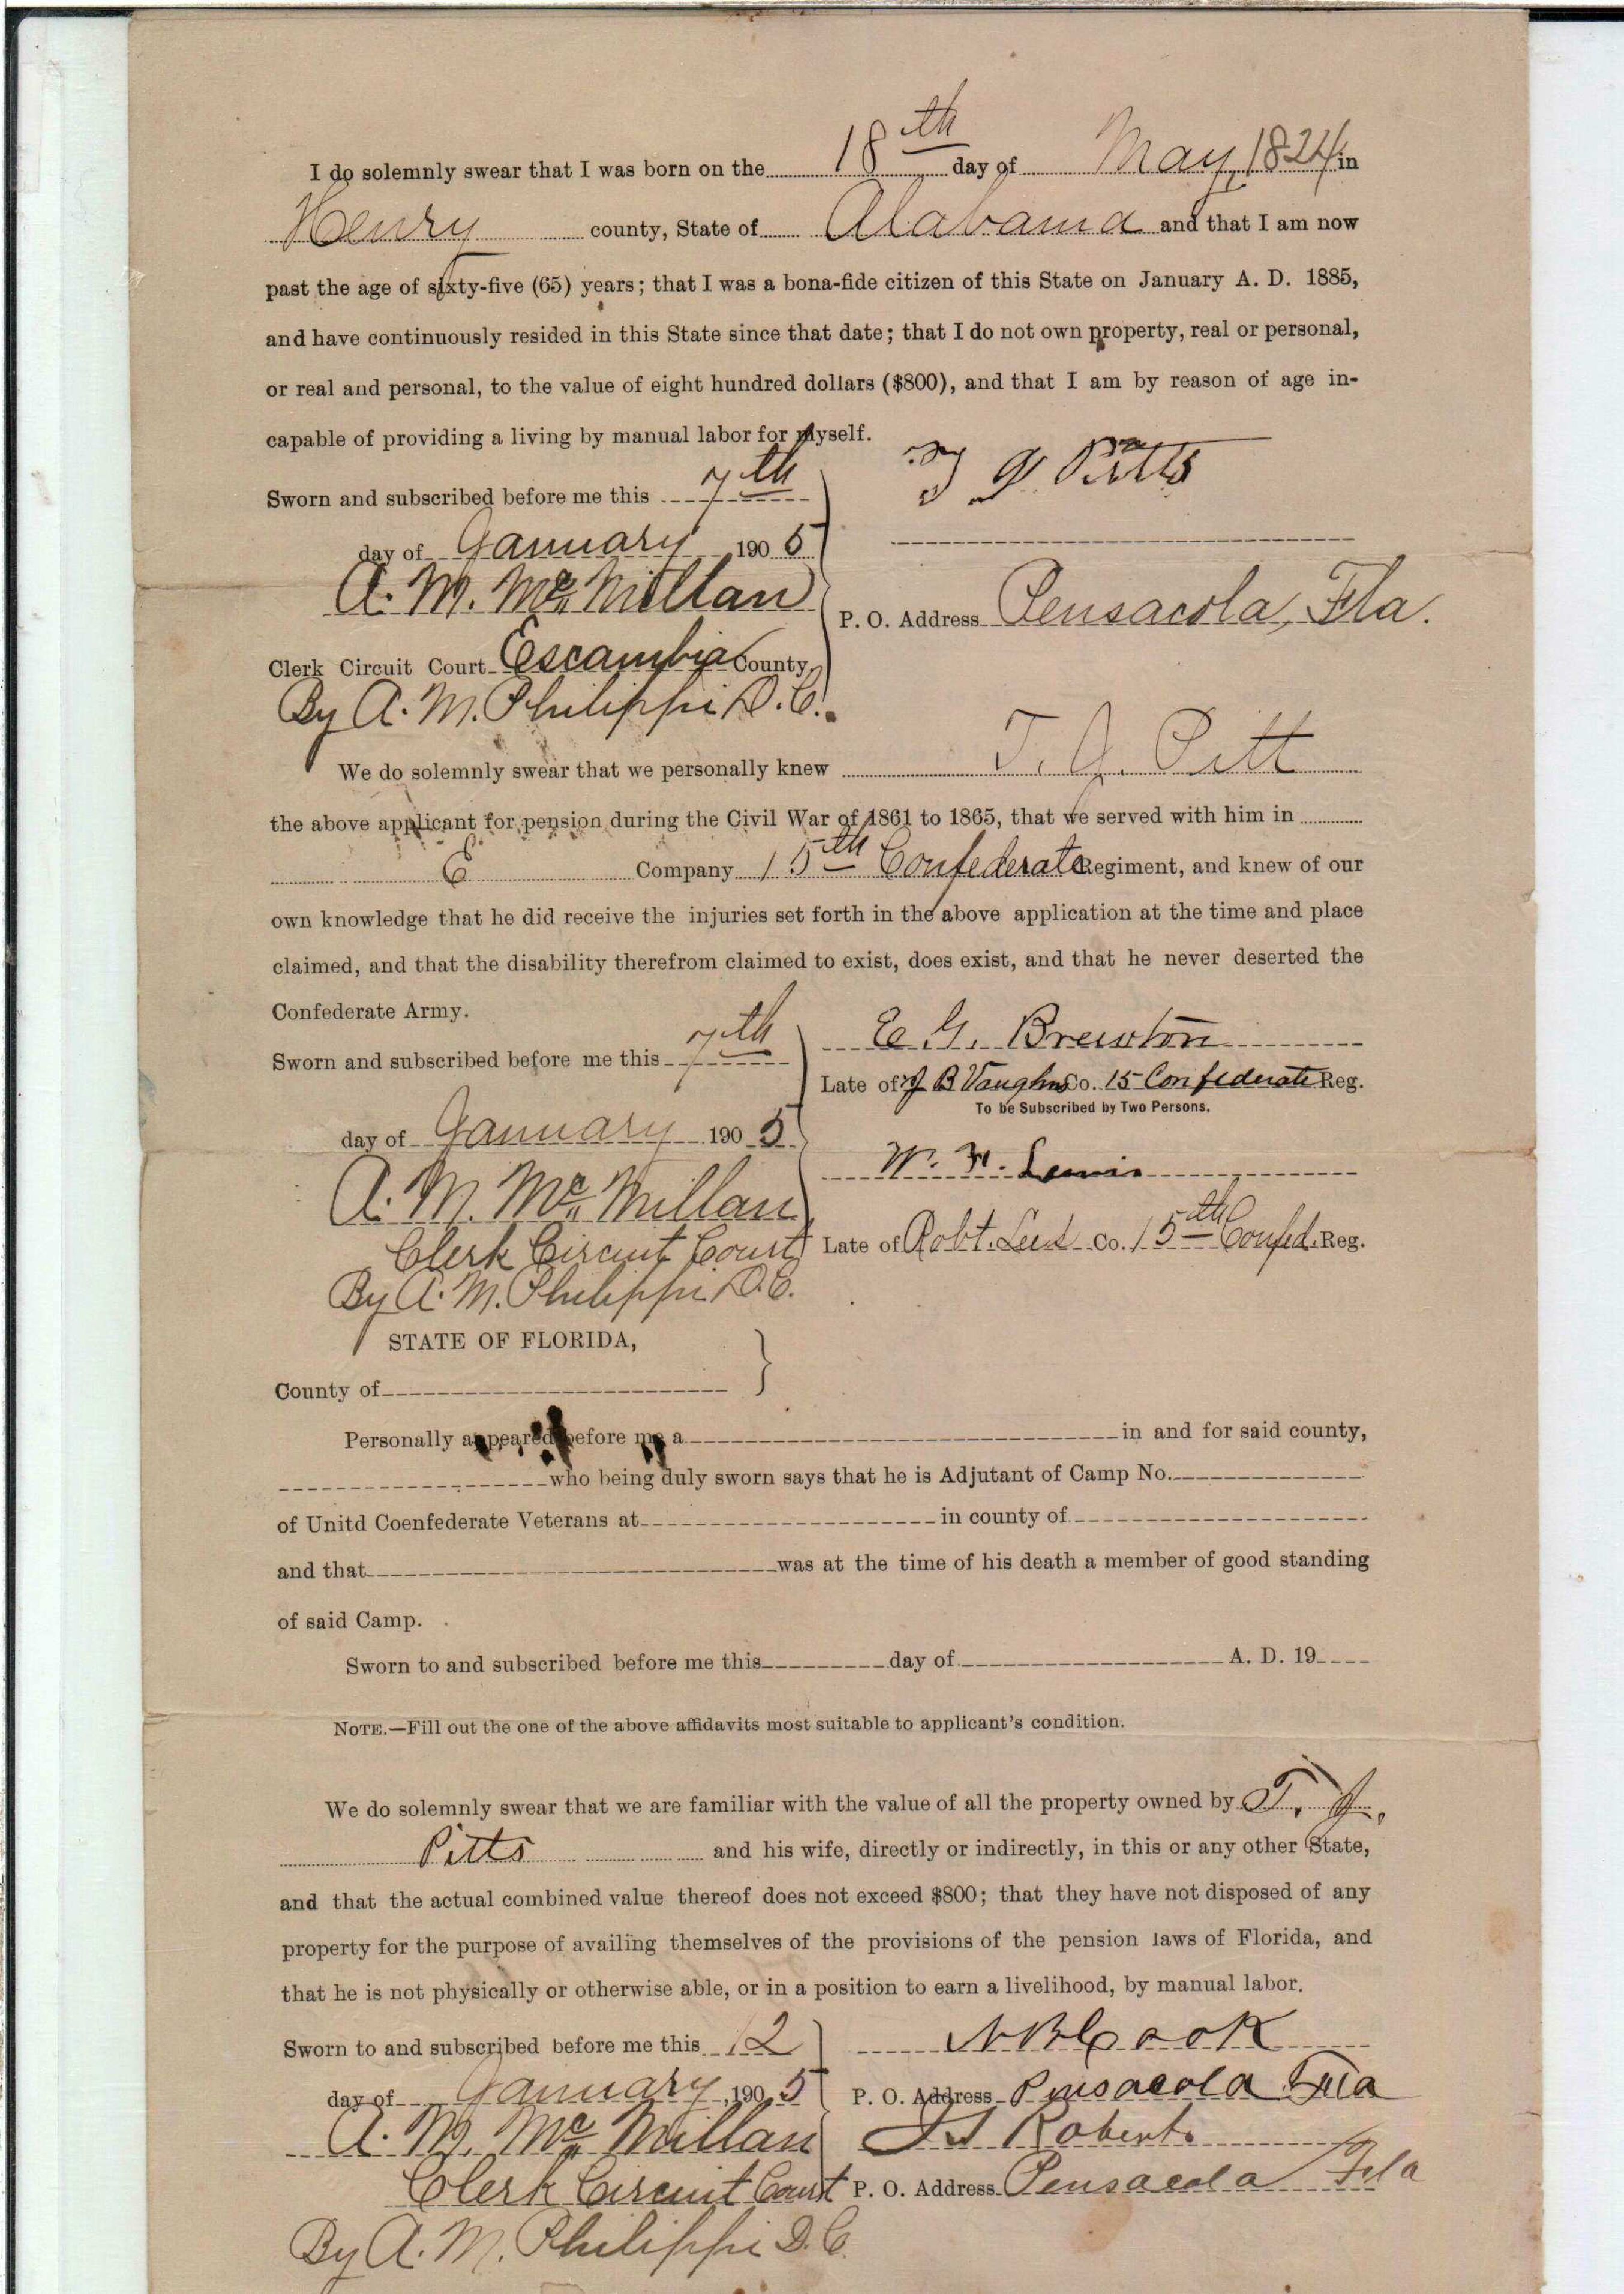 I do solemnly swear that I was born on the 18th day of May, 1824 in
Henry county, State of Alabama and that I am now
past the age of sixty-five (65) years; that I was a bona-fide citizen of this State on January A. D. 1885,
and have continuously resided in this State since that date; that I do not own property, real or personal,
or real and personal, to the value of eight hundred dollars ($800), and that I am by reason of age in-
capable of providing a living by manual labor for myself.
T J Pitts
Sworn and subscribed before me this 7th
day of January 1905
A. M. McMillan
P. O. Address Pensacola, Fla.
Clerk Circuit Court Escambia County,
By A. M. Philippi D. C.
We do solemnly swear that we personally knew T. J. Pitt
the above applicant for pension during the Civil War of 1861 to 1865, that we served with him in
E Company 15th Confederate Regiment, and knew of our
own knowledge that he did receive the injuries set forth in the above application at the time and place
claimed, and that the disability therefrom claimed to exist, does exist, and that he never deserted the
Confederate Army.
Sworn and subscribed before me this 7th
E. G. Brewton
Late of J B Vaughns Co. 15 Confederate Reg.
To be Subscribed by Two Persons.
day of January 1905
W. F. Lewis
A. M. McMillan
Clerk Circuit Court
Late of Robt. Lees Co. 15th Confed. Reg.
By A. M. Philippi D. C.
STATE OF FLORIDA,
County of
Personally appeared before me a in and for said county,
who being duly sworn says that he is Adjutant of Camp No.
of Unitd Coenfederate Veterans at in county of
and that was at the time of his death a member of good standing
of said Camp.
Sworn to and subscribed before me this day of A. D. 19
NOTE.—Fill out the one of the above affidavits most suitable to applicant's condition.
We do solemnly swear that we are familiar with the value of all the property owned by T. J.
Pitts and his wife, directly or indirectly, in this or any other State,
and that the actual combined value thereof does not exceed $800; that they have not disposed of any
property for the purpose of availing themselves of the provisions of the pension laws of Florida, and
that he is not physically or otherwise able, or in a position to earn a livelihood, by manual labor.
Sworn to and subscribed before me this 12
N B Cook
day of January, 1905
P. O. Address Pensacola Fla
A. M. McMillan
J S Roberts
Clerk Circuit Court
P. O. Address Pensacola Fla
By A. M. Philippi D. C.